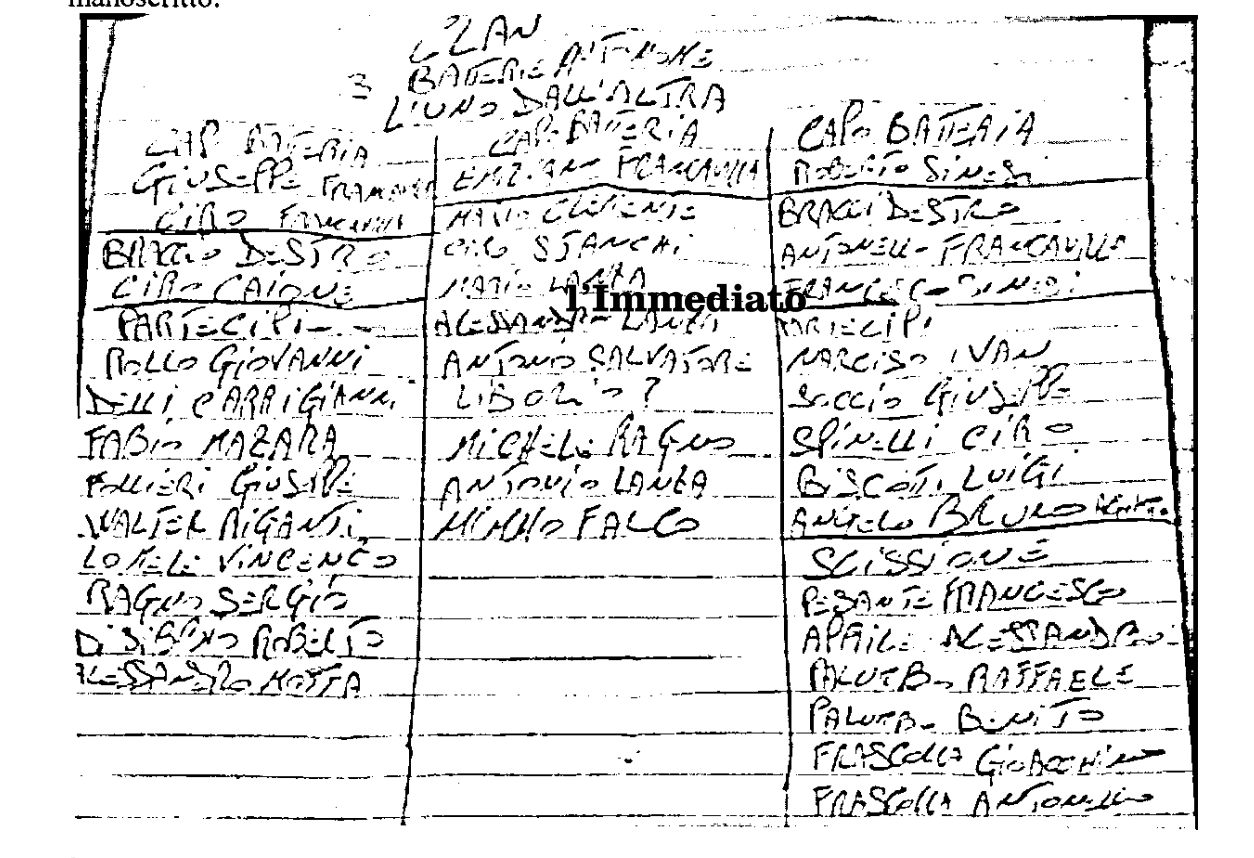 manoscritto.
CLAN
3 BATTERIE AUTONOME
L'UNO DALL'ALTRA
CAPO BATTERIA
GIUSEPPE FRANCAVILLA
CIRO FRANCAVILLA
BRACCIO DESTRO
CIRO CAIONE
PARTECIPI
ROLLO GIOVANNI
DELLI CARRI GIANNI
FABIO MAZARA
FOLLIERI GIUSEPPE
WALTER RIGANTI
LOMELE VINCENZO
RAGNO SERGIO
DI SIBBIO ROBERTO
ALESSANDRO MOTTA
CAPO BATTERIA
EMILIANO FRANCAVILLA
MARIO CLEMENTE
CIRO STANCHI
MARIO LANZA
ALESSANDRO LANZA
ANTONIO SALVATORE
LIBORIO ?
MICHELE RAGNO
ANTONIO LANZA
MIMMO FALCO
CAPO BATTERIA
ROBERTO SINESI
BRACCI DESTRO
ANTONELLO FRANCAVILLA
FRANCESCO SINESI
PARTECIPI
NARCISO IVAN
SOCCIO GIUSEPPE
SPINELLI CIRO
BISCOTI LUIGI
ANGELO BRUNO
SCISSIONE
PESANTE FRANCESCO
APRILE ALESSANDRO
PALUMBO RAFFAELE
PALUMBO BENITO
FRASCOLLA GIOACCHINO
FRASCOLLA ANTONELLO
l'Immediato